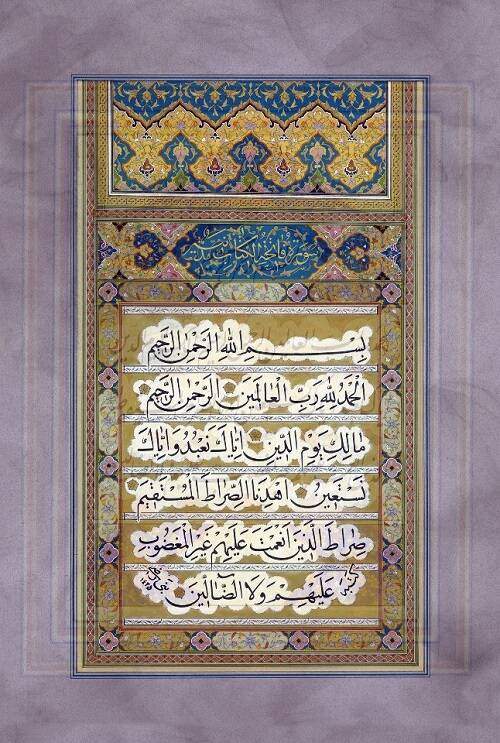 سورة فاتحة الكتاب
بِسْمِ اللهِ الرَّحْمٰنِ الرَّحِيمِ
الْحَمْدُ لِلّٰهِ رَبِّ الْعَالَمِينَ الرَّحْمٰنِ الرَّحِيمِ
مَالِكِ يَوْمِ الدِّينِ إِيَّاكَ نَعْبُدُ وَإِيَّاكَ
نَسْتَعِينُ اهْدِنَا الصِّرَاطَ الْمُسْتَقِيمَ
صِرَاطَ الَّذِينَ أَنْعَمْتَ عَلَيْهِمْ غَيْرِ الْمَغْضُوبِ
عَلَيْهِمْ وَلَا الضَّالِّينَ